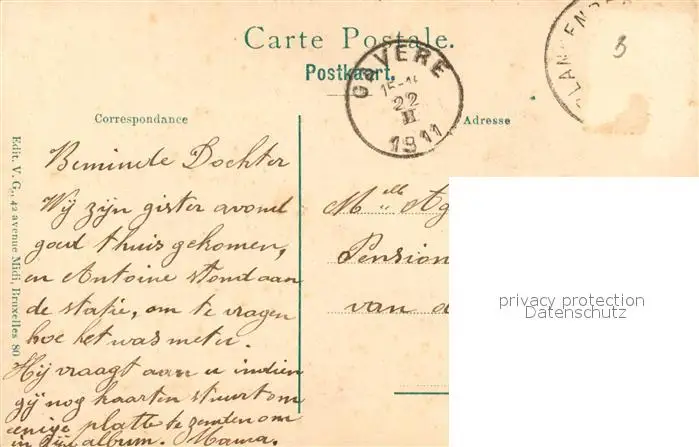 Carte Postale.
Postkaart.
GAVERE
15-1
22
II
1911
BLANKENBE
3
Correspondance
Adresse
Edit. V. G., 42 avenue Midi, Bruxelles 80
Beminde Dochter
Wij zijn gister avond
goed thuis gekomen,
en Antoine stond aan
de statie, om te vragen
hoe het was met u.
Hij vraagt aan u indien
gij nog kaarten stuurt om
eenige platte te zenden om
in zijn album. Mama.
Melle Ag
Pension
van d
privacy protection
Datenschutz